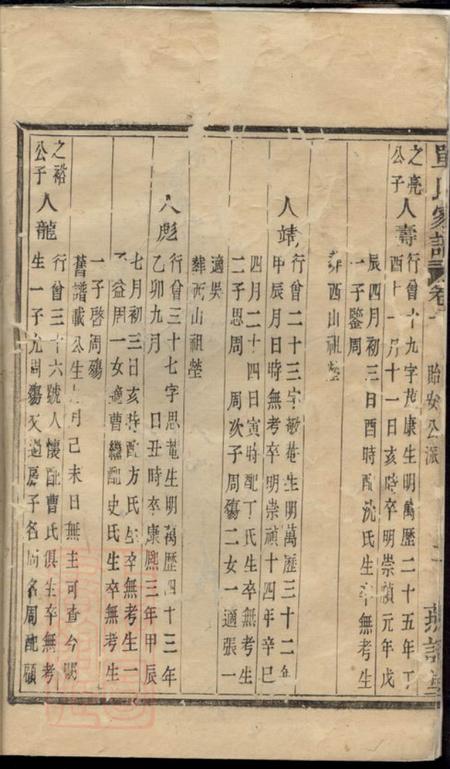 氏家譜 卷 貽安公派 二
之亮公子
人壽
行曾十九字茂康生明萬歷二十五年丁
酉十一月十一日亥時卒明崇禎元年戊
辰四月初三日酉時配沈氏生卒無考生
一子鑒周
葬西山祖塋
人靖
行曾二十三字敏菴生明萬歷三十二年
甲辰月日時無考卒明崇禎十四年辛巳
四月二十四日寅時配丁氏生卒無考生
二子思周 周次子周殤二女一適張一
適吳
葬西山祖塋
人彪
行曾三十七字思菴生明萬歷四十三年
乙卯九月 日丑時卒康熙三年甲辰
七月初三日亥時配方氏生卒無考生一
子益周一女適曹繼配史氏生卒無考生
一子啓周殤
舊譜載公生 月己未日無主可查今
之裕公子
人龍
行曾三十六號人懷配曹氏俱生卒無考
生一子九周殤又過房子名 周配顧